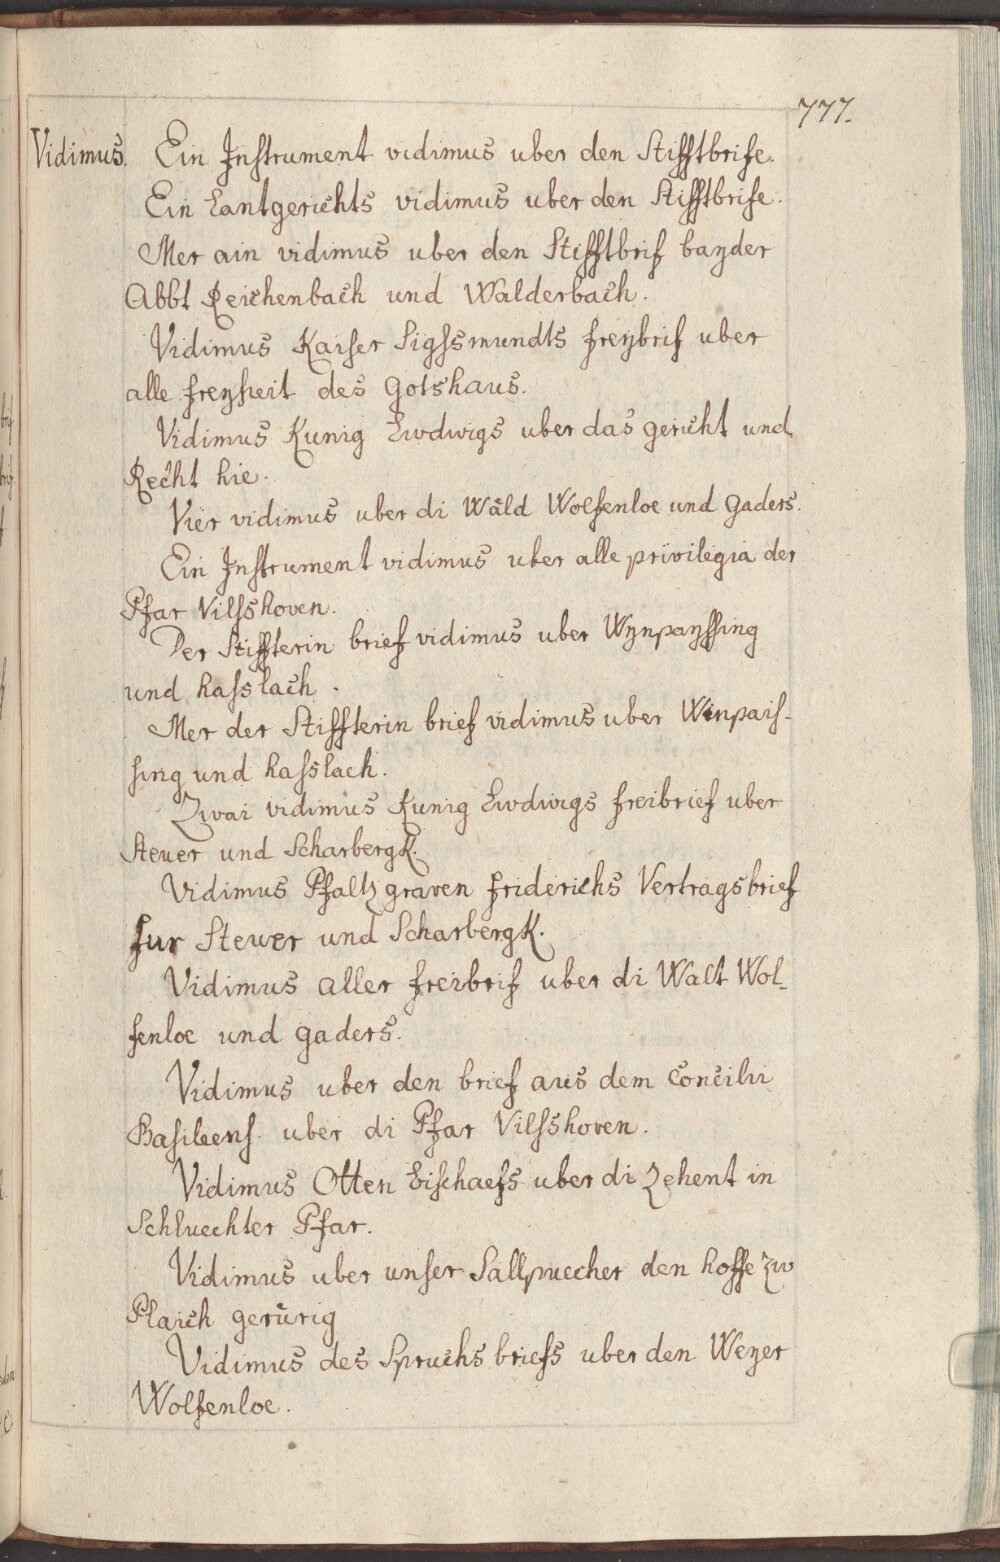 777.
Vidimus. Ein Instrument vidimus uber den Stifftbrife.
Ein Lantgerichts vidimus uber den Stifftbrife.
Mer ain vidimus uber den Stifftbrif bayder
Abbt Reichenbach und Walderbach.
Vidimus Kaiser Sigssmundts freybrif uber
alle freyheit des Gotshaus.
Vidimus Kunig Ludwigs uber das gericht und
Recht hie.
Vier vidimus uber di Wäld Wolfenloe und Gaders.
Ein Instrument vidimus uber alle privilegia der
Pfar Vilsshoven.
Der Stiffterin brief vidimus uber Wynpayssing
und hasslach.
Mer der Stiffterin brief vidimus uber Winpais-
sing und hasslach.
Zwai vidimus Kunig Ludwigs freibrief uber
Steuer und Scharbergk.
Vidimus Pfaltzgraven friderichs Vertragsbrief
fur Stewer und Scharbergk.
Vidimus aller freibrif uber di Walt Wol-
fenloe und Gaders.
Vidimus uber den brief aus dem Concilii
Basileens. uber di Pfar Vilsshoven.
Vidimus Otten Bischaefs uber di Zehent in
Schluechter Pfar.
Vidimus uber unser Sallpuecher den hoffe zw
Plaich gerürig
Vidimus des Spruchs briefs uber den Weyer
Wolfenloe.